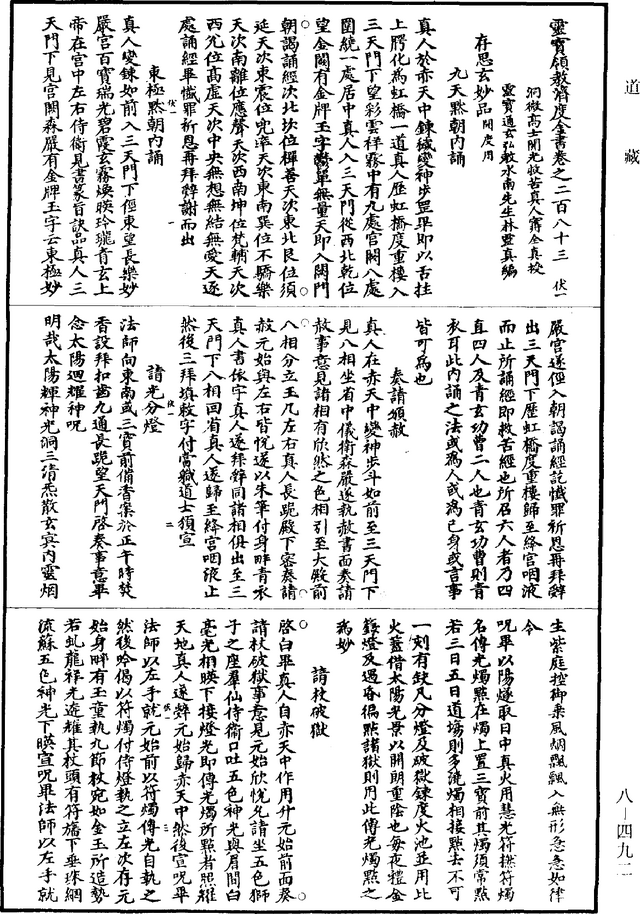 道藏
靈寶領教濟度金書卷之二百八十三 伏一
洞微高士開光救苦真人甯全真授
靈寶通玄弘教水南先生林靈真編
存思玄妙品 開度用
九天默朝內誦
真人於赤天中鍊穢變神步罡畢即以舌拄
上腭化為虹橋一道真人歷虹橋度重樓入
三天門下望彩雲祥霧中有九處宮闕八處
圍繞一處居中真人入三天門從西北乾位
望金闕有金牌玉字鬱單無量天即入闕門
朝謁誦經次北坎位禪善天次東北艮位須
延天次東震位兜率天次東南巽位不驕樂
天次南離位應聲天次西南坤位梵輔天次
西兌位高虛天次中央無想無結無愛天逐
處誦經畢懺罪祈恩再拜辭謝而出
東極默朝內誦
真人變鍊如前入三天門下徑東望長樂妙
嚴宮百寶瑞光碧霞玄霧煥映玲瓏青玄上
帝在宮中左右侍衛見書篆旨訣品真人三
天門下見宮闕森嚴有金牌玉字云東極妙
嚴宮遂徑入朝謁誦經訖懺罪祈恩再拜辭
出三天門下歷虹橋度重樓歸至絳宮咽液
而止所誦經即救苦經也所召六人者乃四
直四人及青玄功曹二人也青玄功曹則青
衣耳此內誦之法或為人或為已身或言事
皆可為也
奏請頒赦
真人在赤天中變神步斗如前至三天門下
見八相坐省中儀衛森嚴遂執赦書而奏請
赦事意見諸相有欣然之色相引至大殿前
八相分立玉几左右真人長跪殿下容奏請
赦元始與左右皆悅遂以朱筆付身畔青承
真人書依字真人遂拜辭同諸相俱出至三
天門下八相回省真人遂歸至絳宮咽液止
然後三拜填敕字付當職道士頒宣
請光分燈
法師向東南或三寶前備香案於正午時焚
香設拜扣齒九通長跪望天門啓奏事意畢
念太陽迴耀神呪
明哉太陽輝神光洞三清炁散玄冥內靈烟
生紫庭控御乘風烟飄飄入無形急急如律
令
呪畢以陽燧取日中真火用慧光符撚符燭
名傳光燭點在燭上置三寶前其燭須常點
若三日五日道場則多澆燭相接點去不可
一刻有缺凡分燈及破獄鍊度火池並用此
火蓋借太陽光景以開朗重陰也每夜禮金
籙燈及遇昏徧點諸獄則用此傳光燭點之
為妙
請杖破獄
啓白畢真人自赤天中作用升元始前面奏
請杖破獄事意見元始欣悅允請坐五色獅
子之座羣仙侍衛口吐五色神光與眉間白
毫光相映下接燈光即傳光燭所點者照耀
天地真人遂辭元始歸赤天中然後宣呪畢
法師以左手就元始前以符燭傳光自執之
然後吟偈以符燭付侍燈執之立左次存元
始身畔有玉童執九節杖宛如金玉所造勢
若虬龍祥光遶耀其杖頭有符旛下垂珠網
流蘇五色神光下映宣呪畢法師以左手就
八—四九二